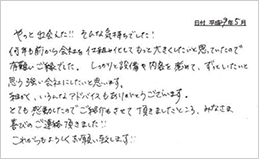 日付 平成19年5月
やっと出会えた!! そんな気持ちでした!
何年も前から会社を仕組み化してもっと大きくしたいと思っていたので
有難いご縁でした。しっかりと設備や内容を固めて、ずっといたいと
思う強い会社にしたいと思います。
細かく、いろんなアドバイスもありがとうございます。
とても感動したのでご紹介もさせて頂きましたところ、みなさま
喜びのご連絡頂きました!!
これからもよろしくお願い致します!